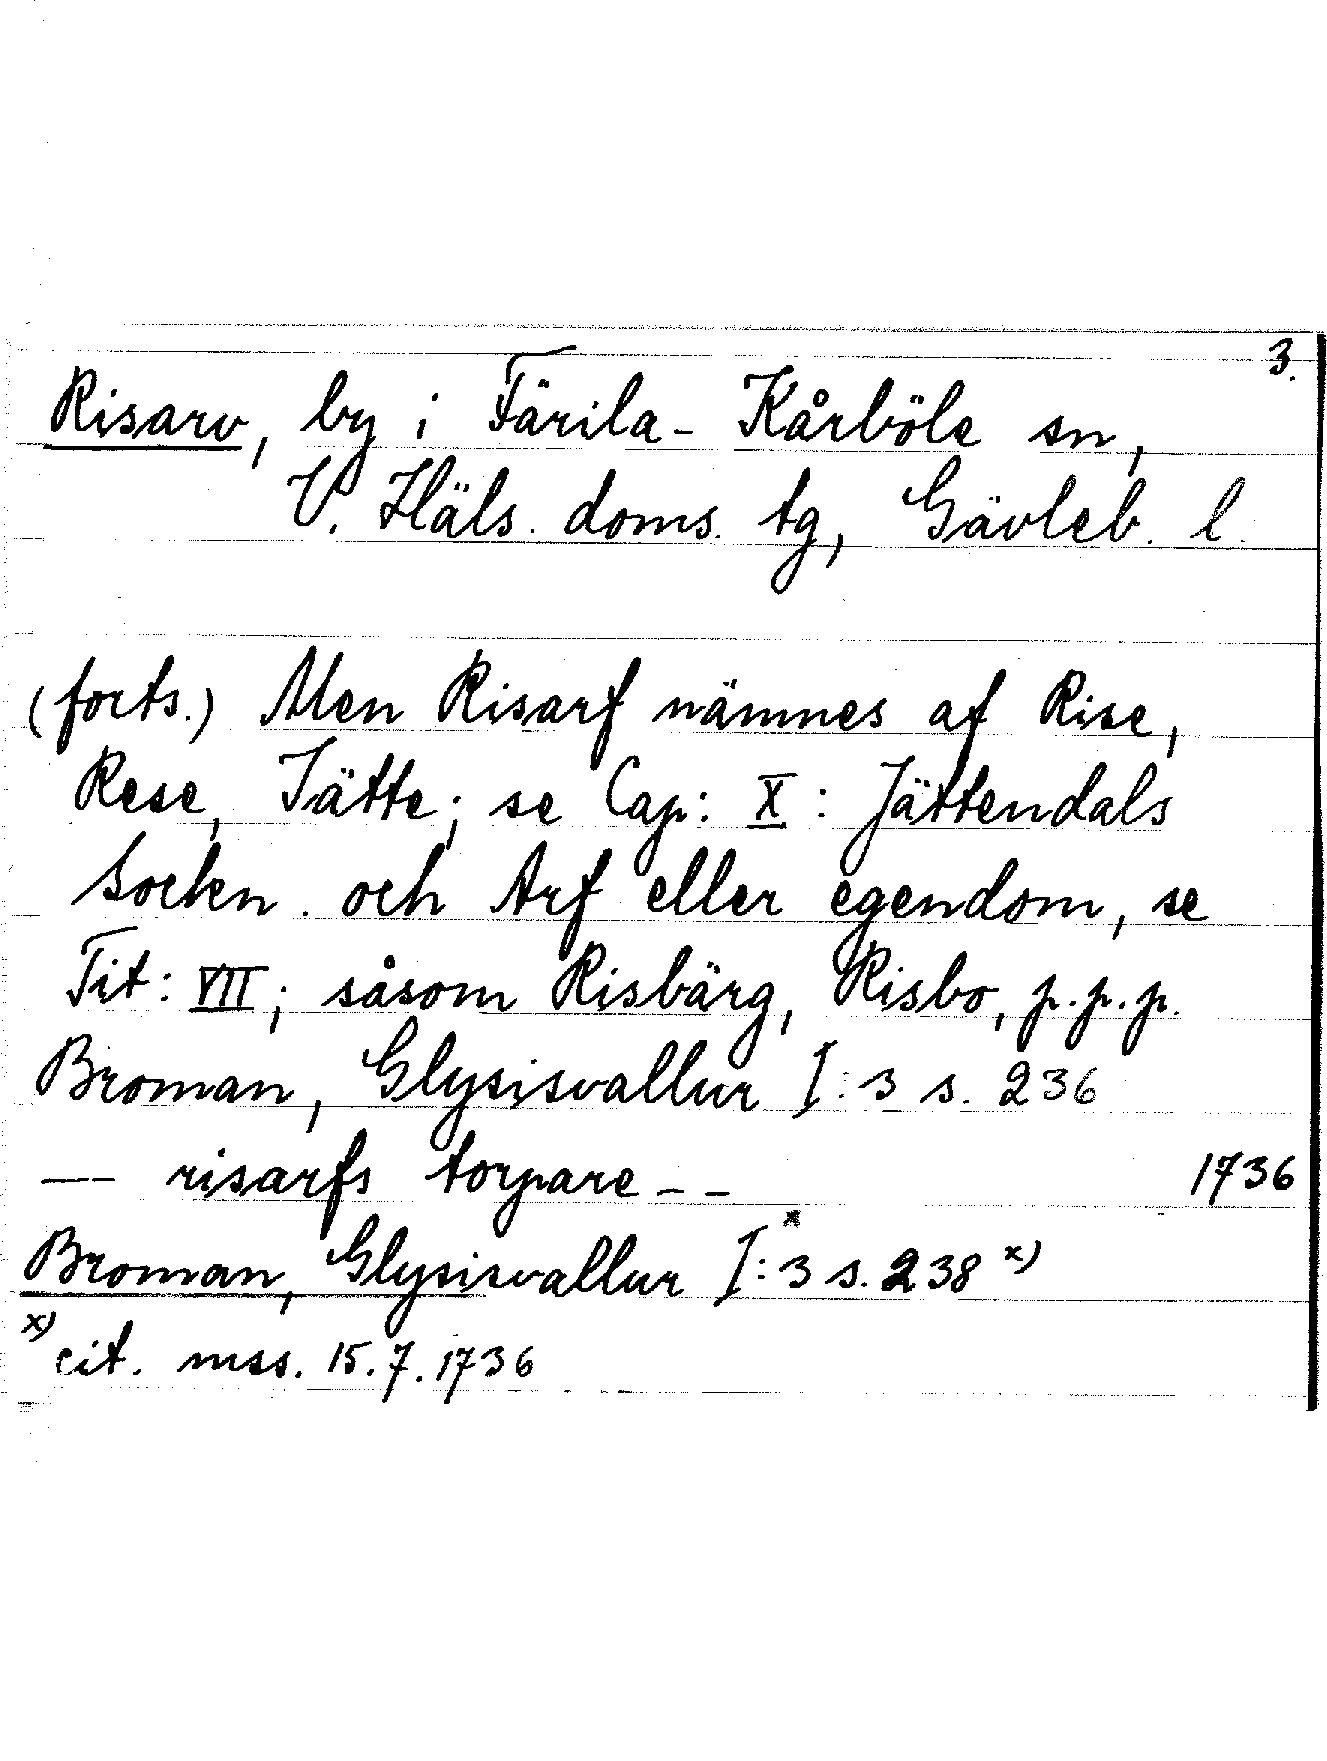 3.
Risarv, by i Färila-Kårböle sn,
V. Häls. doms. tg, Gävleb. l.
(forts.) Men Risarf nämnes af Rise,
Rese, Jätte; se Cap: X: Jättendals
Socken. och Arf eller egendom, se
Tit: VII; såsom Risbärg, Risbo, p.p.p.
Broman, Glysisvallur I:3 s. 236
—— risarfs torpare -- 1736
Broman, Glysisvallur I:3 s. 238 x)
x) cit. mss. 15.7.1736